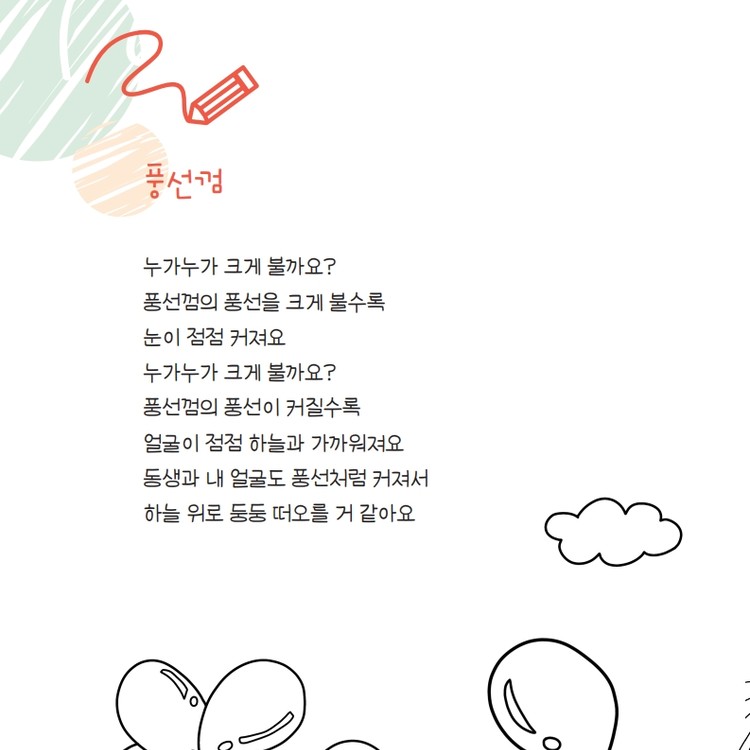 풍선껌
누가누가 크게 불까요?
풍선껌의 풍선을 크게 불수록
눈이 점점 커져요
누가누가 크게 불까요?
풍선껌의 풍선이 커질수록
얼굴이 점점 하늘과 가까워져요
동생과 내 얼굴도 풍선처럼 커져서
하늘 위로 둥둥 떠오를 거 같아요